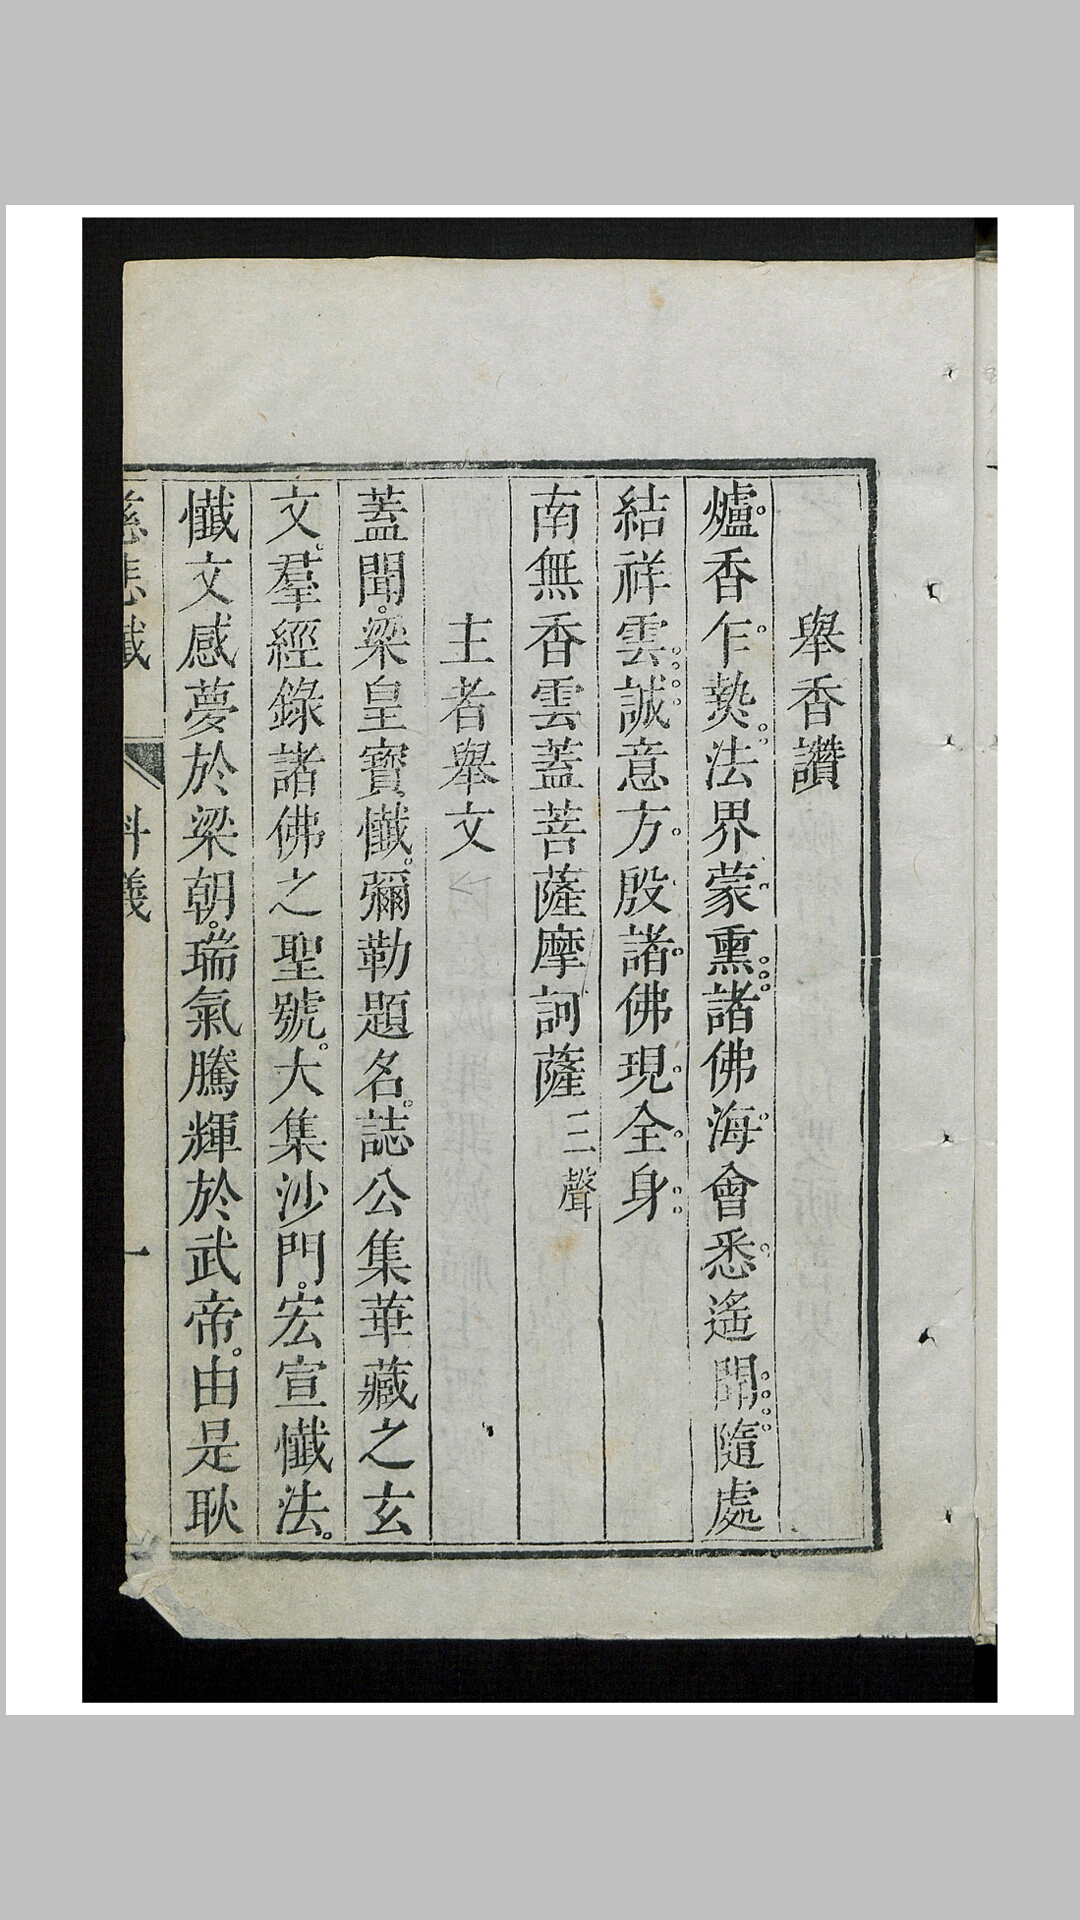 舉香讚
爐香乍爇法界蒙熏諸佛海會悉遙聞隨處
結祥雲誠意方殷諸佛現全身
南無香雲蓋菩薩摩訶薩三聲
主者舉文
蓋聞。梁皇寶懺。彌勒題名。誌公集華藏之玄
文。羣經錄諸佛之聖號。大集沙門。宏宣懺法。
懺文感夢於梁朝。瑞氣騰輝於武帝。由是耿
慈悲懺 科儀 一